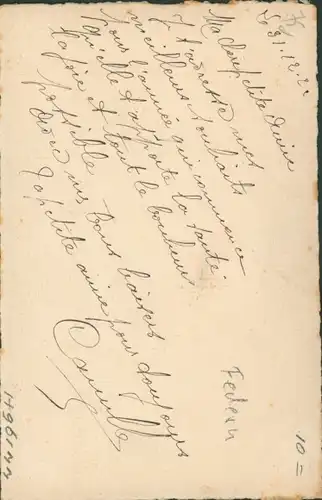 31.12.22
Ma chère petite amie
Je t'adresse mes
meilleurs souhaits
pour l'année qui commence
qu'elle t'apporte la santé
la joie et tout le bonheur
possible
avec mes bons baisers
Ta petite amie pour toujours
Camille
Federn
10=